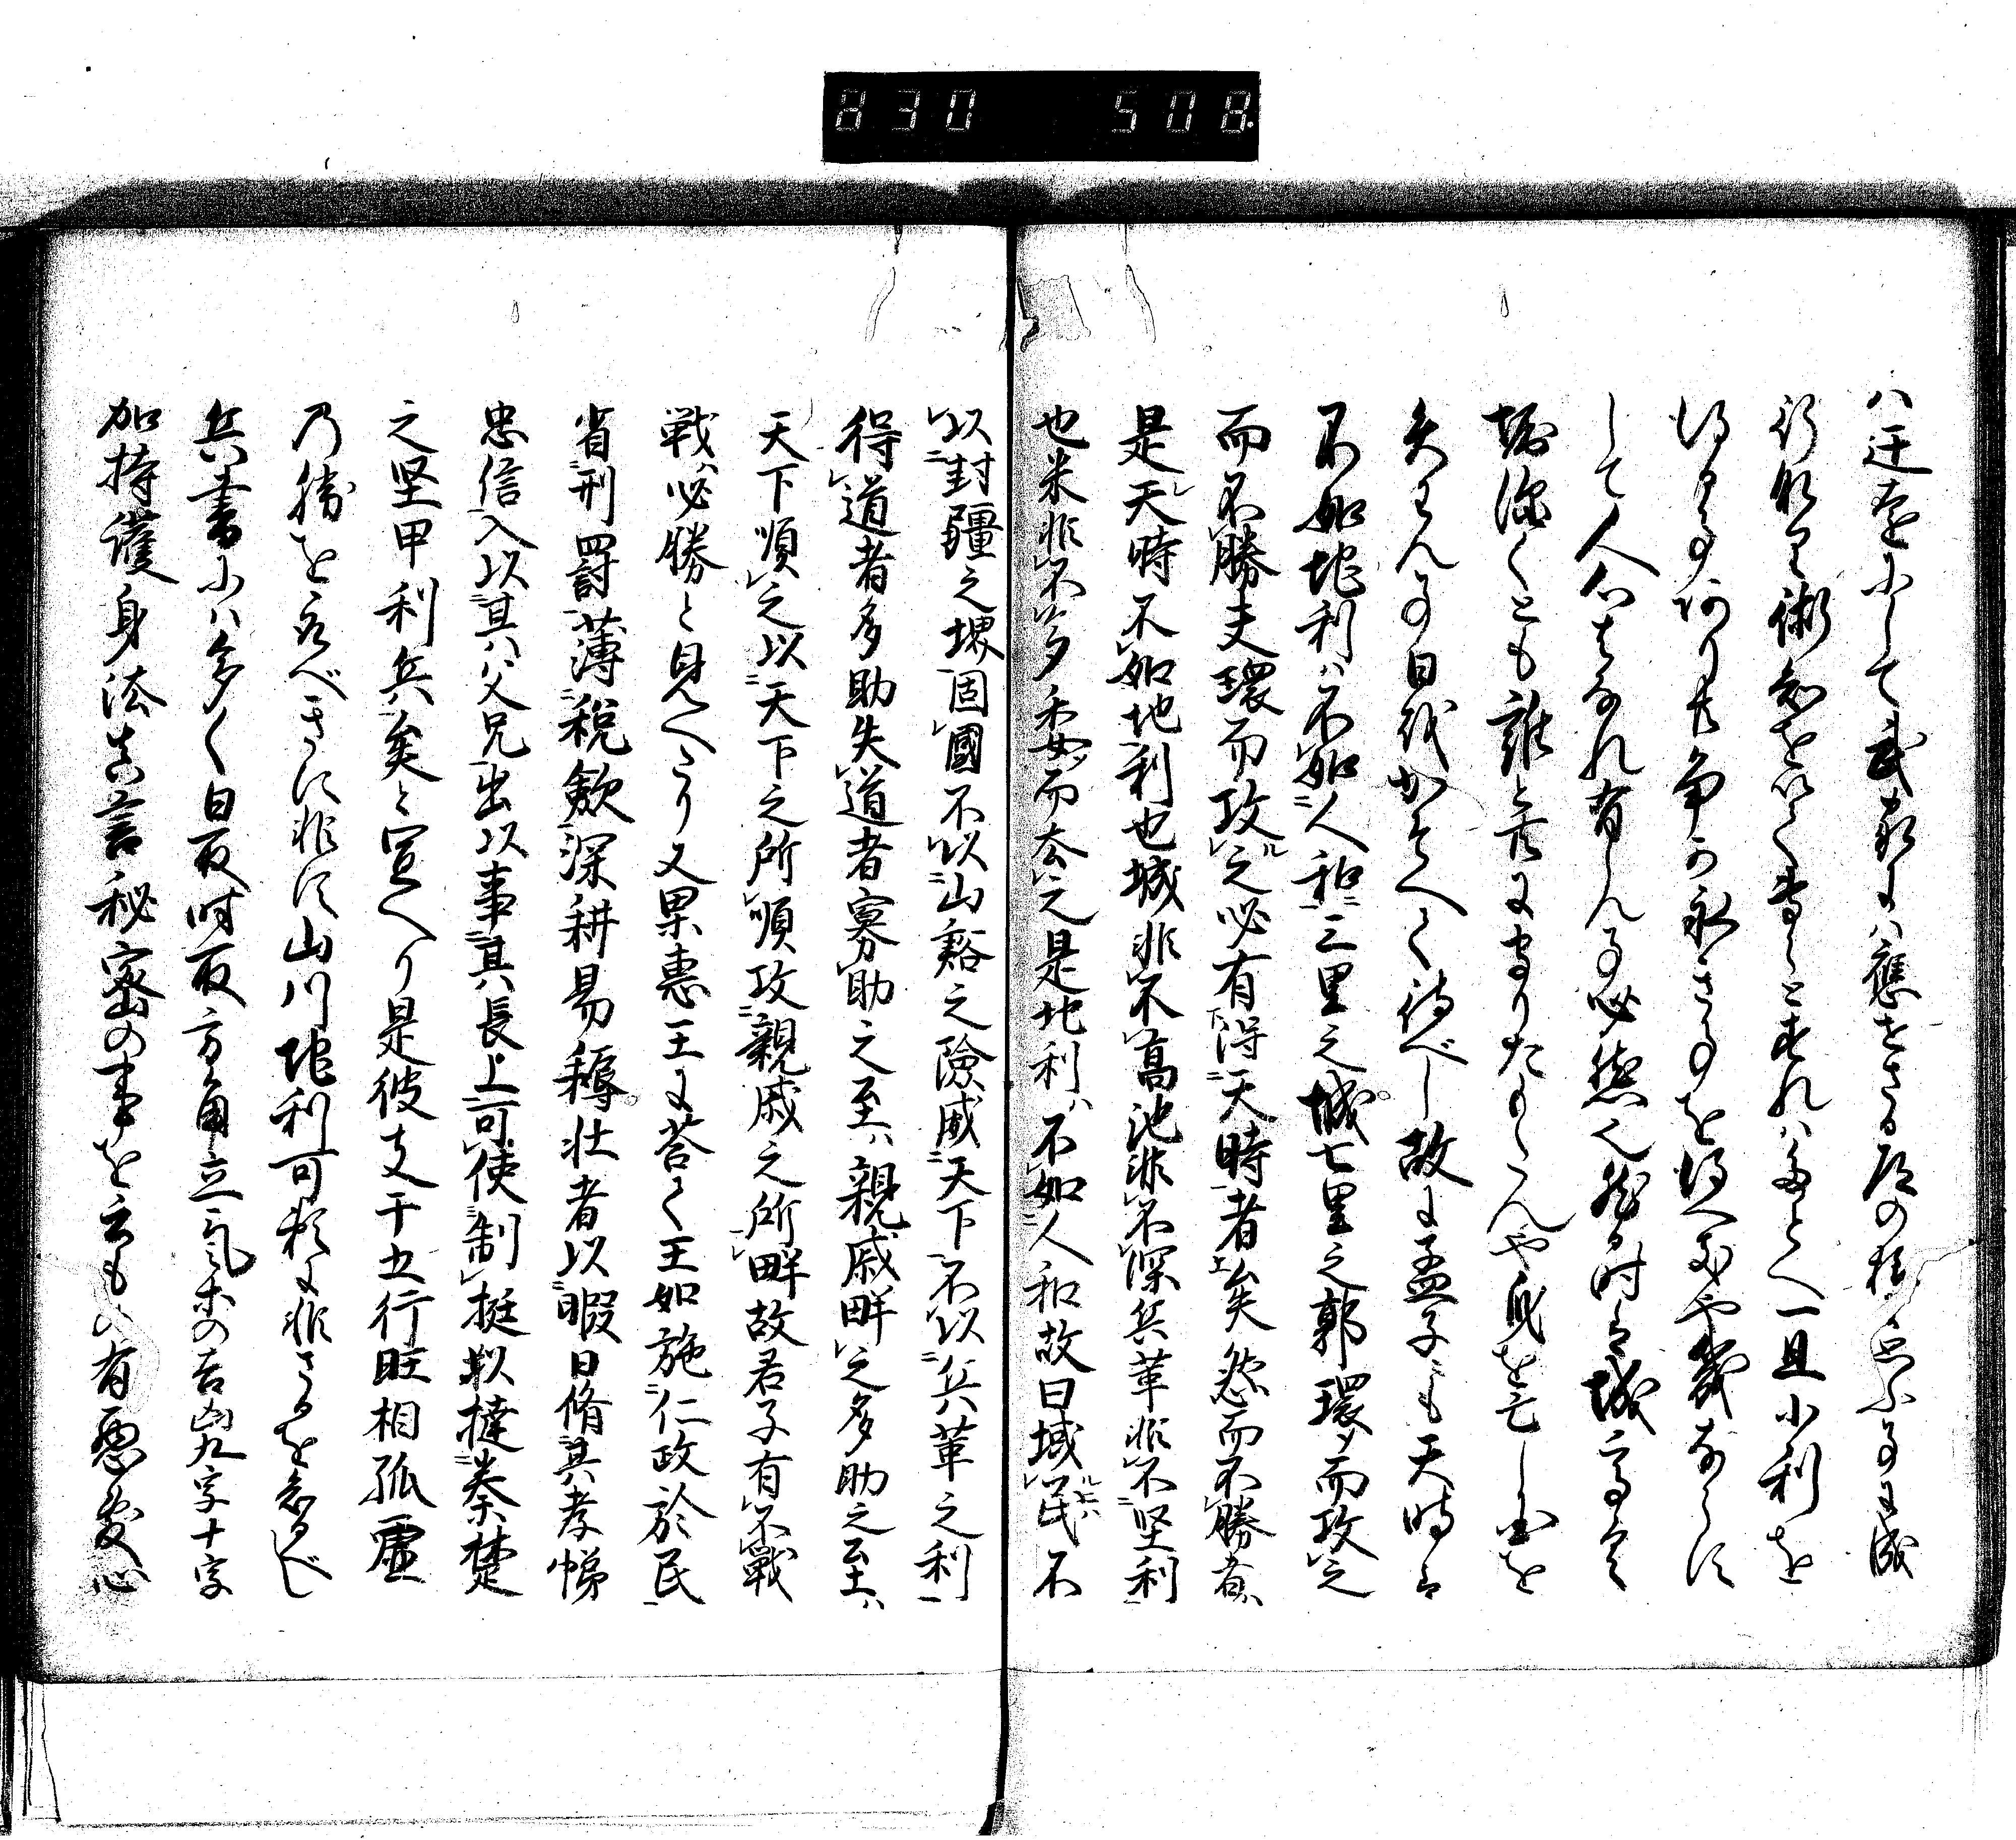 830 508
ハ迂遠にして武教にハ應せさる故の様に思ふ事に成
行なり術知を以て専らとすれハたとへ一旦小利を
得る事ありとも争か永き事を得へきや幾ならす
して人心はなれ背ん事必然也然る時は城高く
堀深くとも誰と共にかまもりたもたんや身を亡し国を
失ハん事日越かそへて待べし故に孟子にも天時は
不如地利ハ不如人和三里之城七里之郭環而攻之
而不勝夫環而攻之必有得天時者矣然而不勝者
是天時不如地利也城非不高池非不深兵革非不堅利
也米非不多委而去之是地利ハ不如人和故曰域民不
以封疆之堺固國不以山谿之險威天下不以兵革之利
得道者多助失道者寡助寡助之至ハ親戚畔之多助之至ハ
天下順之以天下之所順攻親戚之所畔故君子有不戰
戦ハ必勝と見へたり又梁惠王に荅て王如施仁政於民
省刑罰薄税歛深耕易耨壮者以暇日脩其孝悌
忠信入以其ハ父兄出以事其長上可使制挺以撻秦楚
之堅甲利兵矣と宣へり是彼支干五行旺相孤虚
乃勝を云べきに非す山川地利可頼に非さるを知るべし
兵書にハ多く日取时取方角立氣ホの吉凶九字十字
加持護身法真言秘密の事を云もハ有悪處心